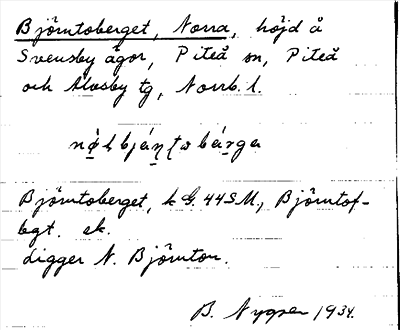 Björntoberget, Norra, höjd å
Svensby ägor, Piteå sn, Piteå
och Älvsby tg, Norrb. l.
Björntoberget, k G. 44 SM, Björntof-
bgt. ek.
Ligger N. Björnton.
B. Nygren 1934.